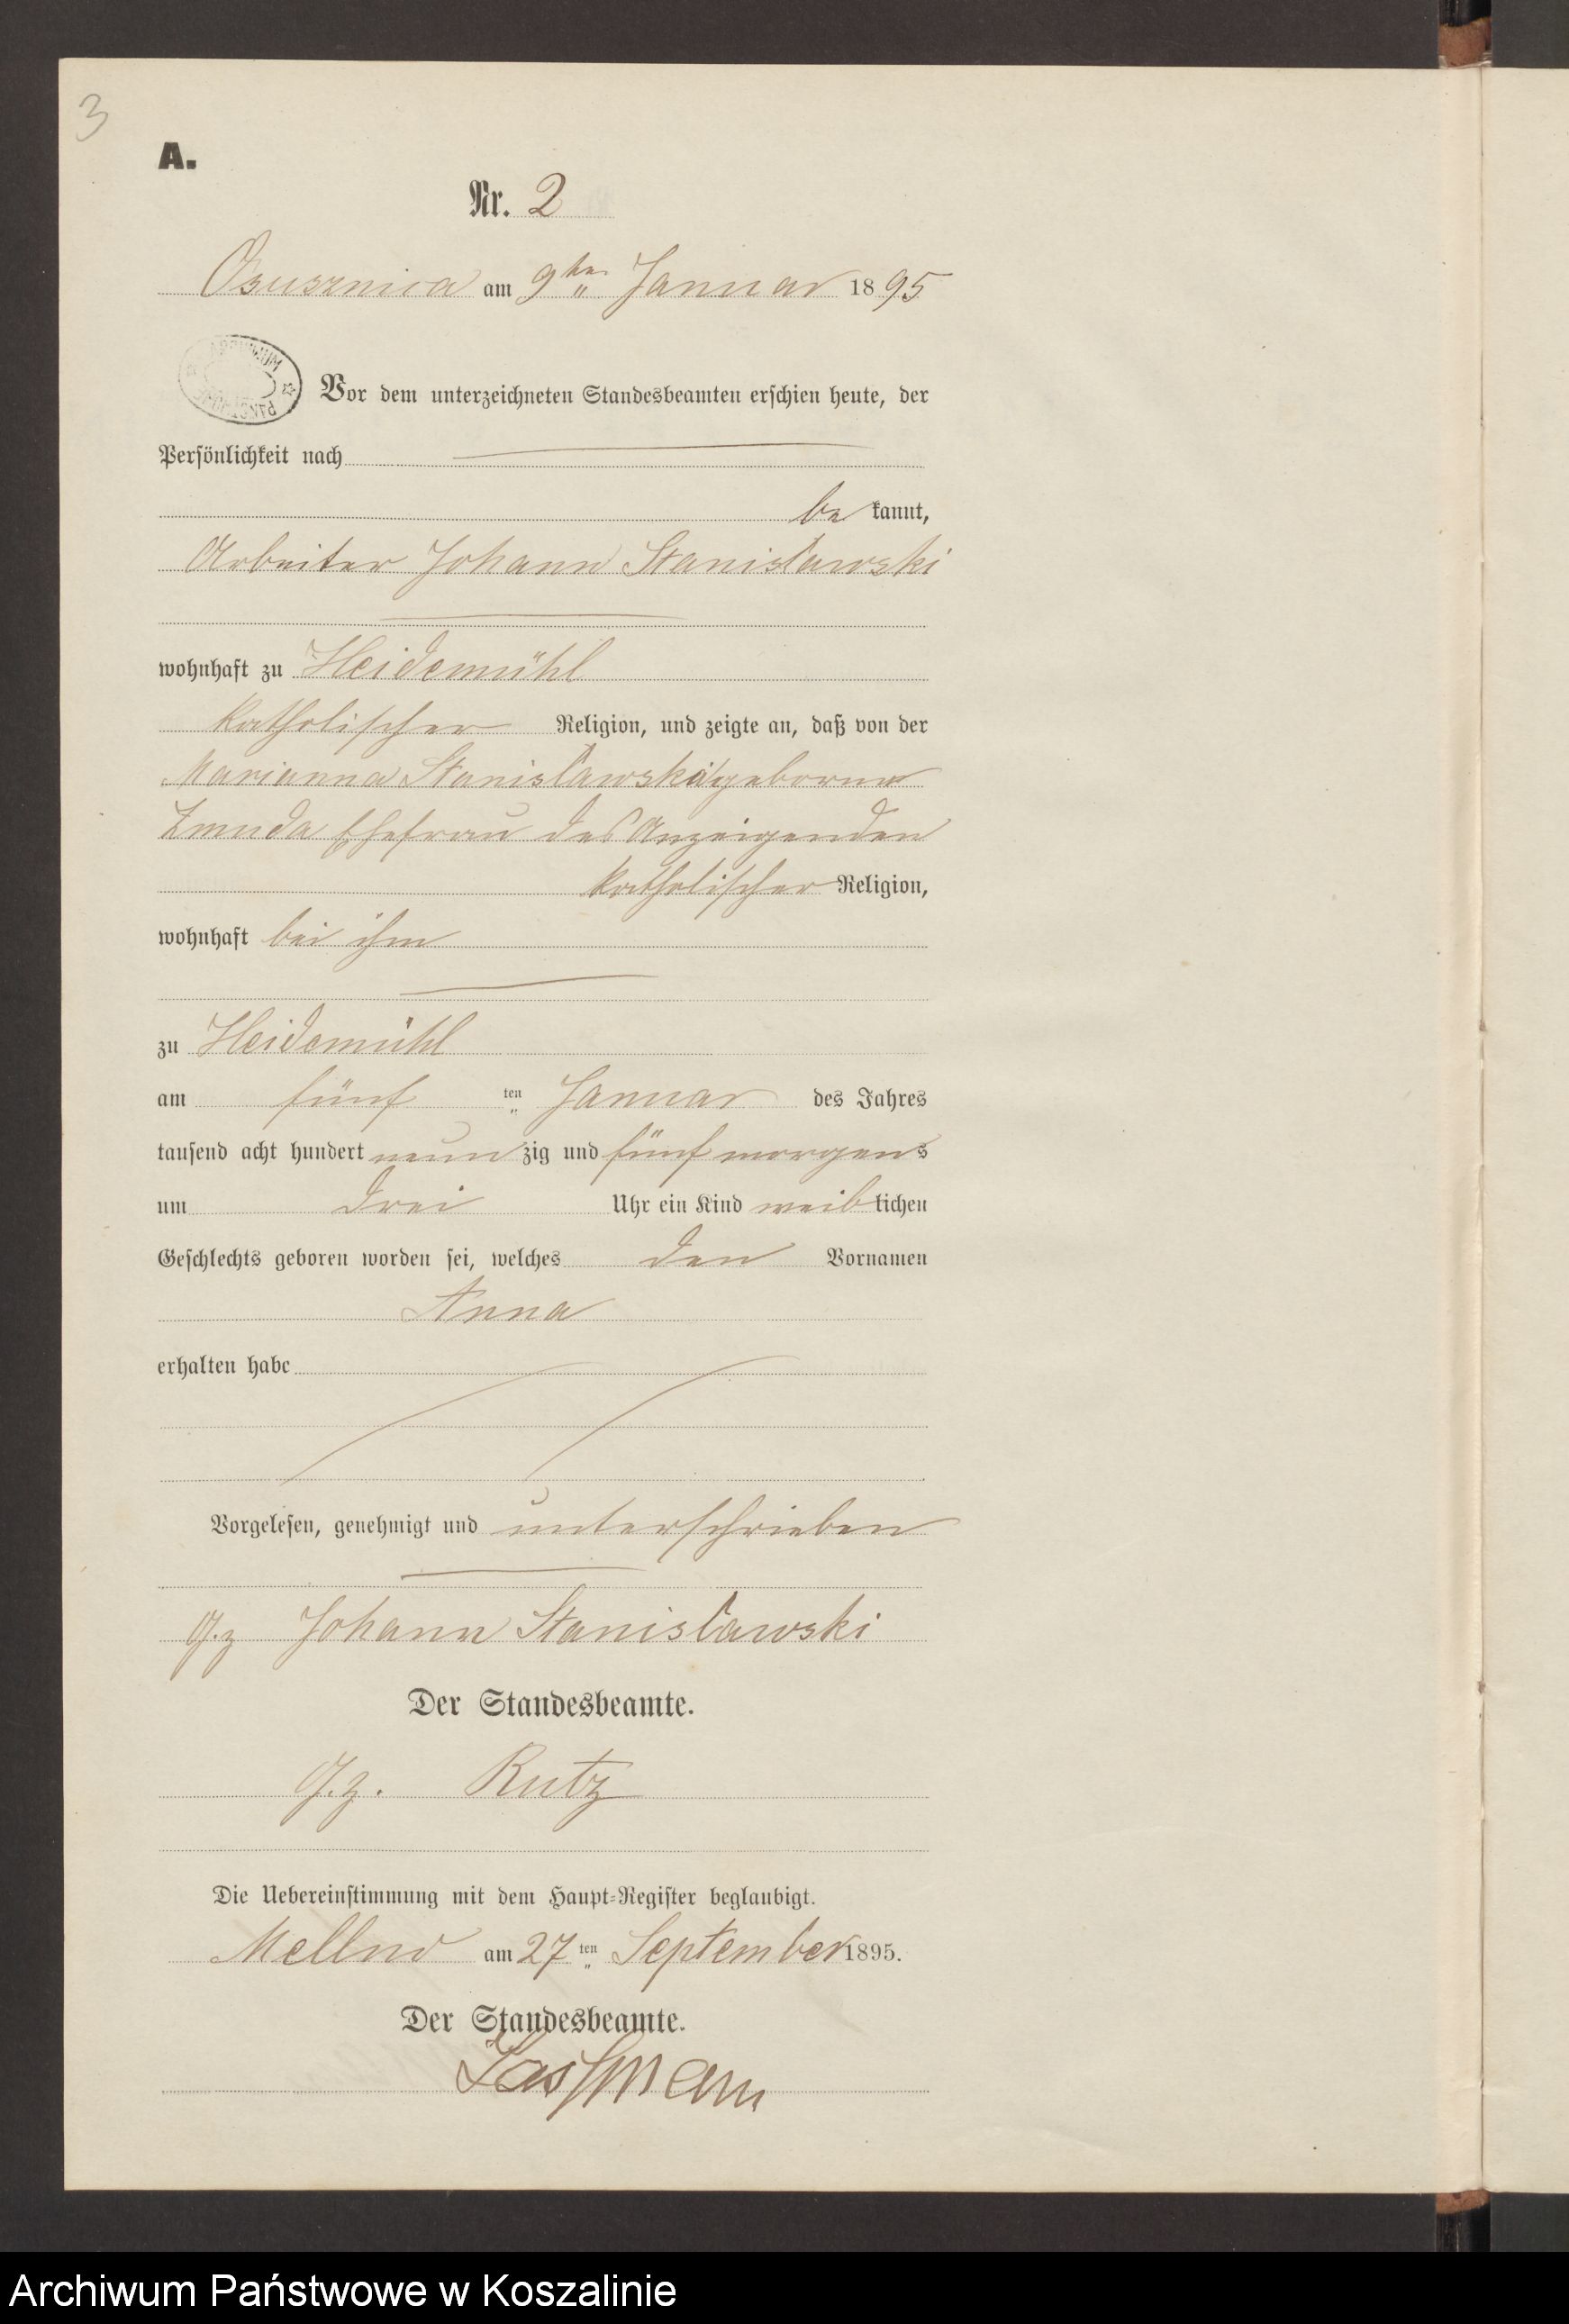 3
A.
Nr. 2
Osusznica am 9ten Januar 1895
ARCHIWUM
Vor dem unterzeichneten Standesbeamten erschien heute, der
Persönlichkeit nach
be kannt,
Arbeiter Johann Stanisławski
wohnhaft zu Heidemühl
katholischer Religion, und zeigte an, daß von der
Marianna Stanisławska geborne
Zmuda Ehefrau des Anzeigenden
katholischer Religion,
wohnhaft bei ihm
zu Heidemühl
am fünf ten Januar des Jahres
tausend acht hundert neun zig und fünf morgens
um drei Uhr ein Kind weiblichen
Geschlechts geboren worden sei, welches den Vornamen
Anna
erhalten habe
Vorgelesen, genehmigt und unterschrieben
g.z Johann Stanisławski
Der Standesbeamte.
g.z. Rutz
Die Uebereinstimmung mit dem Haupt-Register beglaubigt.
Mellno am 27ten September 1895.
Der Standesbeamte.
Archiwum Państwowe w Koszalinie